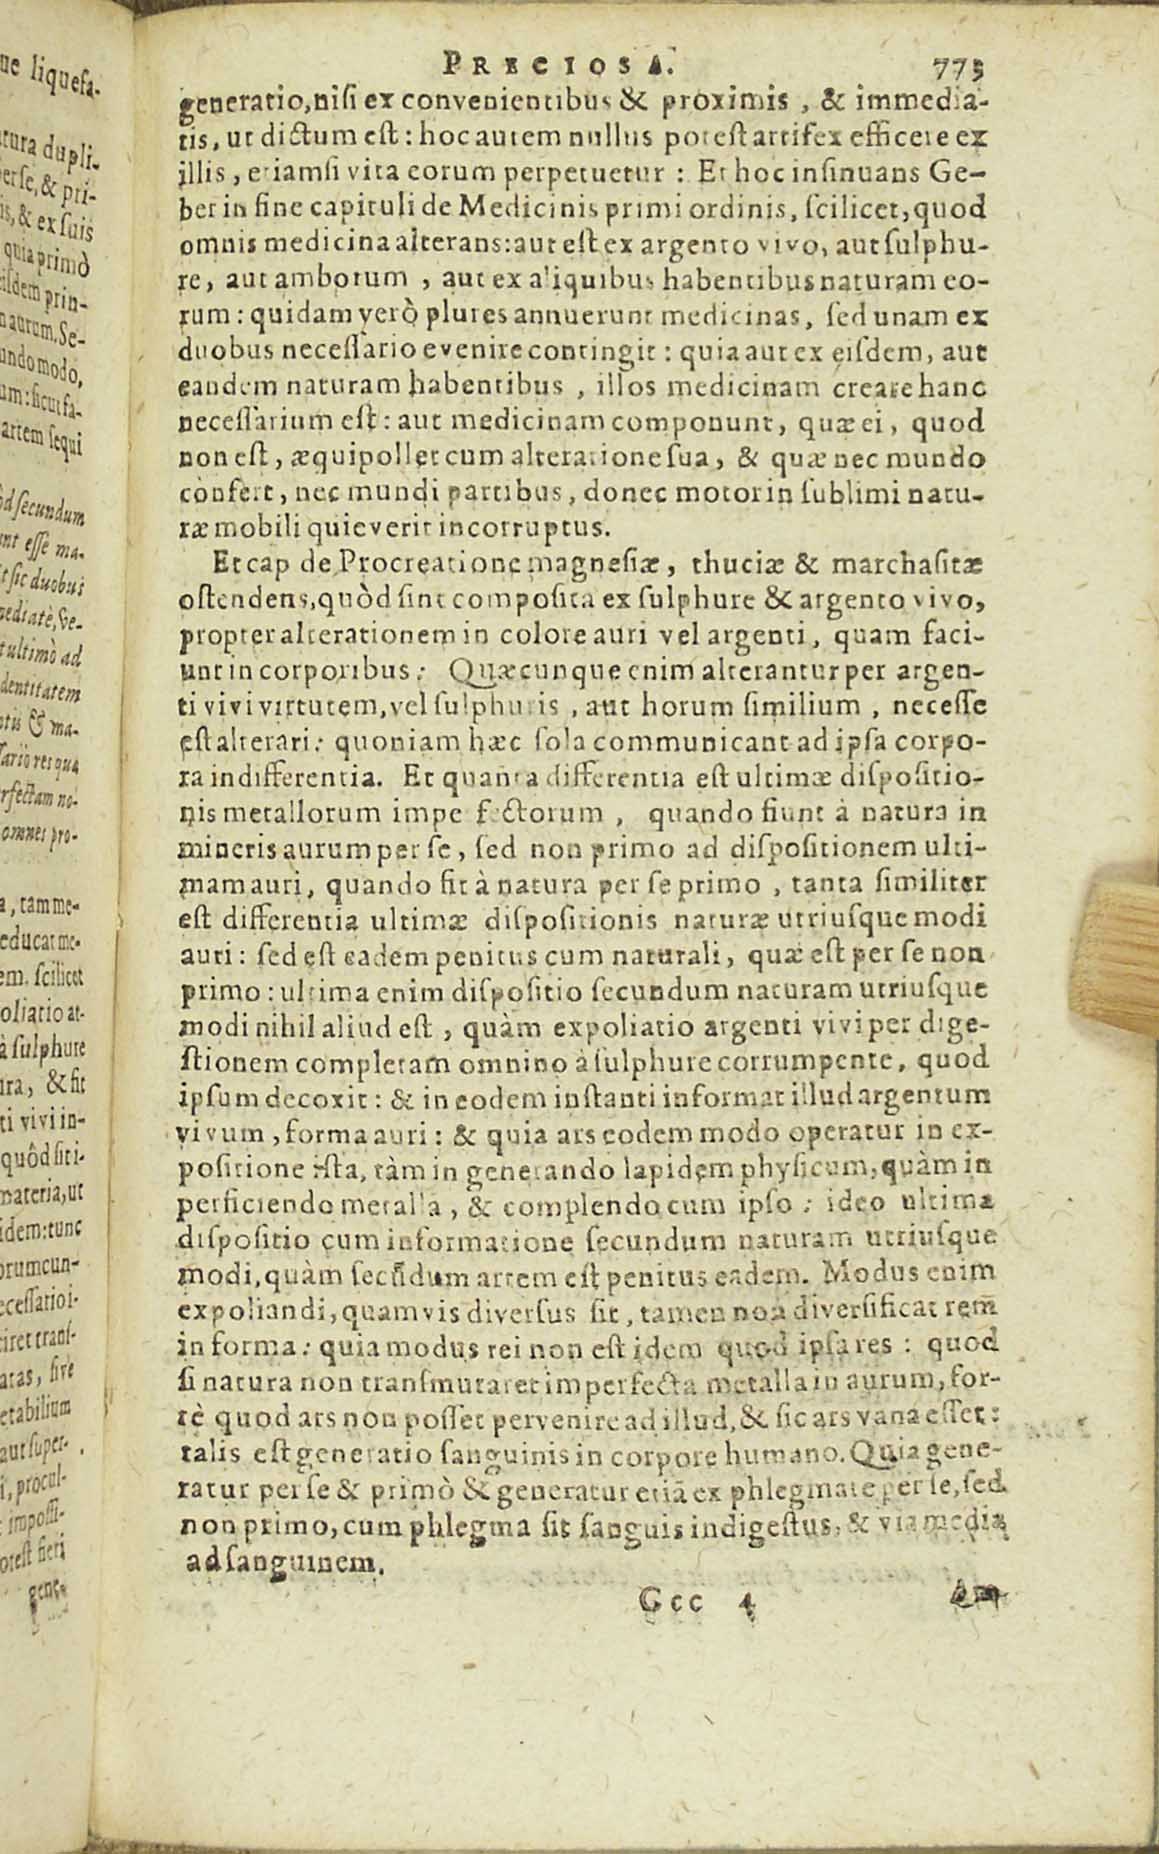 ue liquefa-
tura dupli-
per se, & pri-
is, & ex suis
quia primò
eisdem prin-
naurum. Se-
undo modo,
um: sicut fa-
artem sequi
od secundum
unt esse ma-
t sic duobus
mediatè, Ve-
t ultimò ad
dentitatem
ntis & ma-
ssario res qua
rfectam no-
omnes pro-
a, tam me-
educat me-
em. scilicet
oliatio ar-
à sulphure
ura, & fit
ti vivi in-
quôd siti-
materia, ut
idem: tunc
orumcun-
ecessario i-
iret trans-
atas, sive
etabilium
aut super-
i, procul-
impossi-
otest fieri
gene-
PRECIOSA. 775
generatio, nisi ex convenientibus & proximis, & immedia-
tis, ut dictum est: hoc autem nullus potest artifex efficere ex
illis, etiamsi vita eorum perpetuetur: Et hoc insinuans Ge-
ber in fine capituli de Medicinis primi ordinis, scilicet, quod
omnis medicina alterans: aut est ex argento vivo, aut sulphu-
re, aut amborum, aut ex aliquibus habentibus naturam eo-
rum: quidam verò plures annuerunt medicinas, sed unam ex
duobus necessario evenire contingit: quia aut ex eisdem, aut
eandem naturam habentibus, illos medicinam creare hanc
necessarium est: aut medicinam componunt, quæ ei, quod
non est, æquipollet cum alteratione sua, & quæ nec mundo
confert, nec mundi partibus, donec motor in sublimi natu-
ræ mobili quieverit incorruptus.
Et cap de Procreatione magnesiæ, thuciæ & marchasitæ
ostendens, quòd sint composita ex sulphure & argento vivo,
propter alterationem in colore auri vel argenti, quam faci-
unt in corporibus: Quæcunque enim alterantur per argen-
ti vivi virtutem, vel sulphuris, aut horum similium, necesse
est alterari: quoniam hæc sola communicant ad ipsa corpo-
ra indifferentia. Et quanta differentia est ultimæ dispositio-
nis metallorum imperfectorum, quando fiunt à natura in
mineris aurum per se, sed non primo ad dispositionem ulti-
mam auri, quando fit à natura per se primo, tanta similiter
est differentia ultimæ dispositionis naturæ utriusque modi
auri: sed est eadem penitus cum naturali, quæ est per se non
primo: ultima enim dispositio secundum naturam utriusque
modi nihil aliud est, quàm expoliatio argenti vivi per dige-
stionem completam omnino à sulphure corrumpente, quod
ipsum decoxit: & in eodem instanti informat illud argentum
vivum, forma auri: & quia ars eodem modo operatur in ex-
positione ista, tàm in generando lapidem physicum, quàm in
perficiendo metalla, & complendo cum ipso: ideo ultima
dispositio cum informatione secundum naturam utriusque
modi, quàm secūdum artem est penitus eadem. Modus enim
expoliandi, quamvis diversus sit, tamen non diversificat rem̄
in forma: quia modus rei non est idem quod ipsa res: quod
si natura non transmutaret imperfecta metalla in aurum, for-
tè quod ars non posset pervenire ad illud, & sic ars vana esset:
talis est generatio sanguinis in corpore humano. Quia gene-
ratur per se & primò & generatur etiā ex phlegmate per se, sed
non primo, cum phlegma sit sanguis indigestus, & via media
ad sanguinem.
Ccc 4